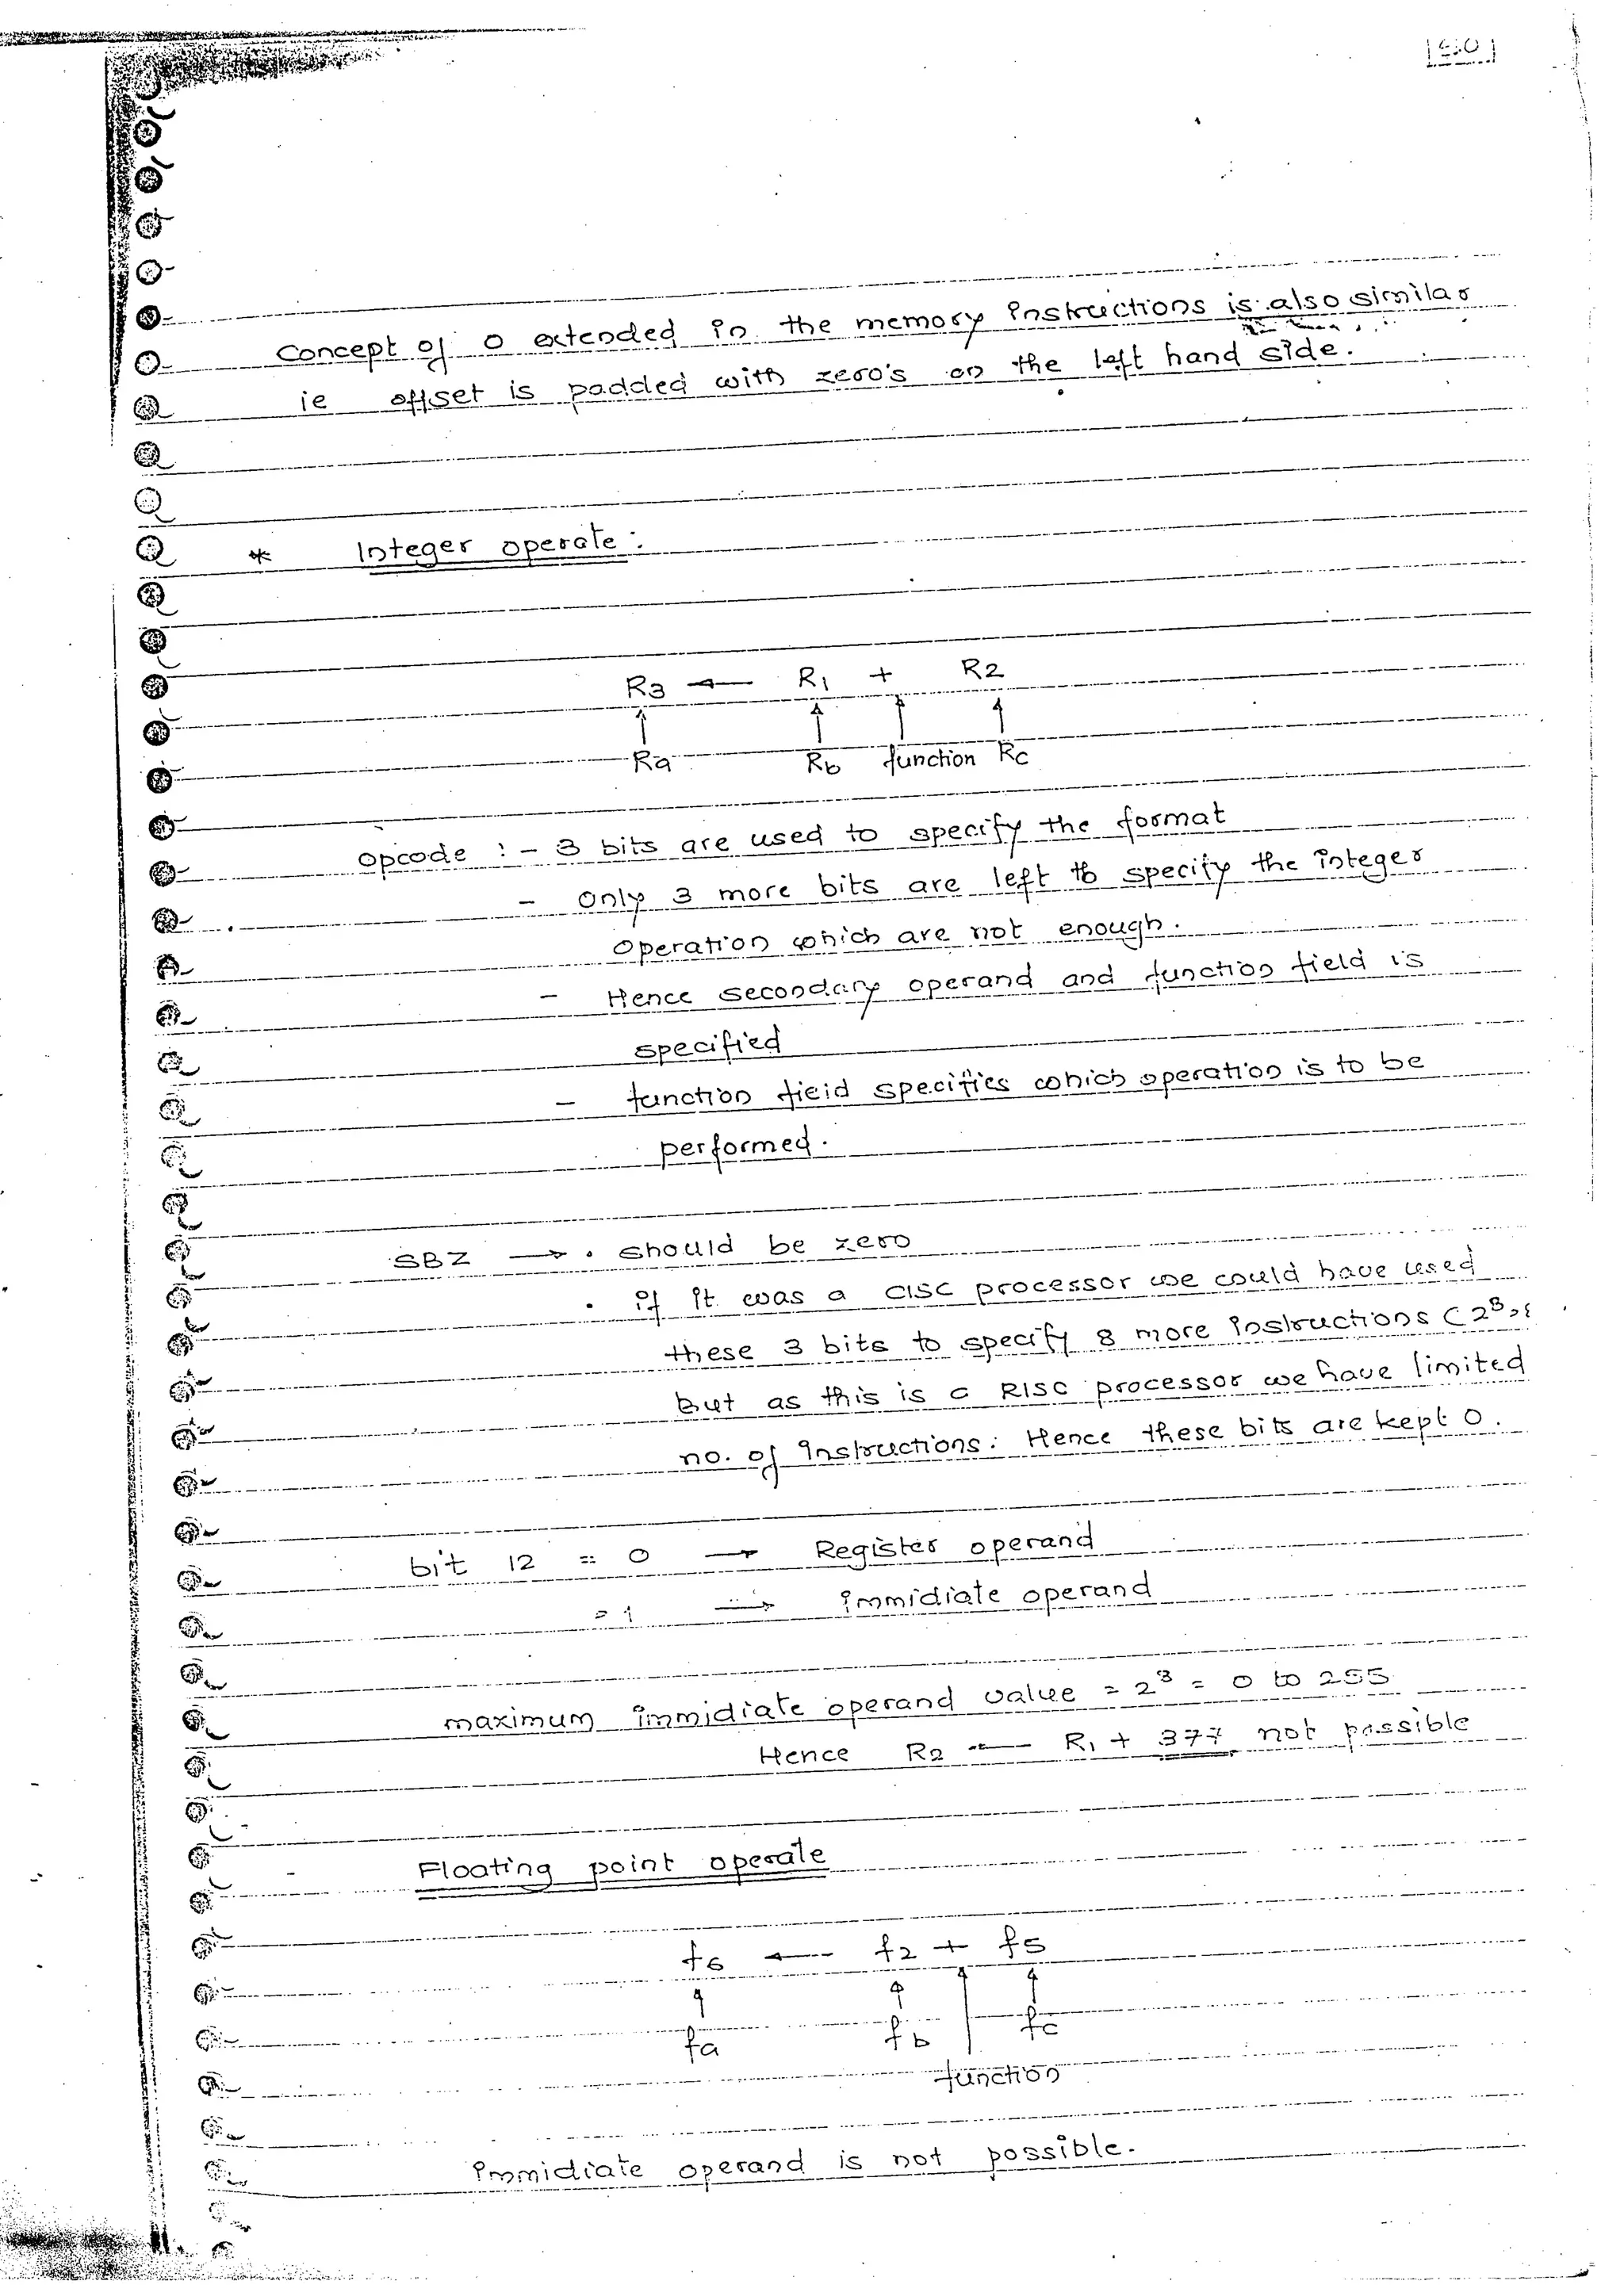 Concept of 0 extended in the memory instructions is also similar
ie offset is padded with zero's on the left hand side.
* Integer operate :
R3 ← R1 + R2
Ra Rb function Rc
Opcode : - 3 bits are used to specify the format
- Only 3 more bits are left to specify the integer
operation which are not enough.
- Hence secondary operand and function field is
specified
- function field specifies which operation is to be
performed.
SBZ → • should be zero
• if it was a CISC processor we could have used
these 3 bits to specify 8 more instructions (2³
But as this is a RISC processor we have limited
no. of instructions. Hence these bits are kept 0.
bit 12 = 0 → Register operand
= 1 → immidiate operand
maximum immidiate operand value = 2³ = 0 to 255
Hence R2 ← R1 + 377 not possible
- Floating point operate
f6 ← f2 + f5
fa fb fc
function
immidiate operand is not possible.